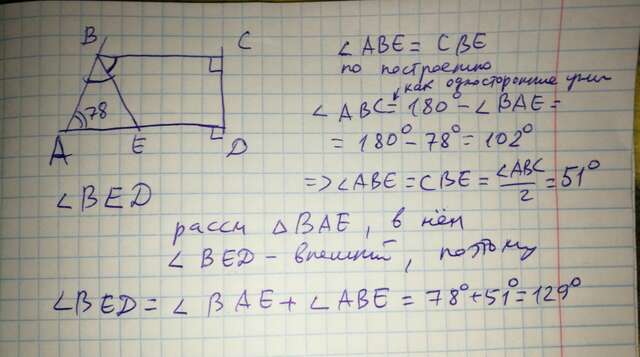 B C
78
A E D
∠ABE = CBE
по построению
как односторонние углы
∠ABC = 180° - ∠BAE =
= 180° - 78° = 102°
=> ∠ABE = CBE = ∠ABC/2 = 51°
∠BED
рассм △BAE, в нём
∠BED - внешний, поэтому
∠BED = ∠BAE + ∠ABE = 78° + 51° = 129°